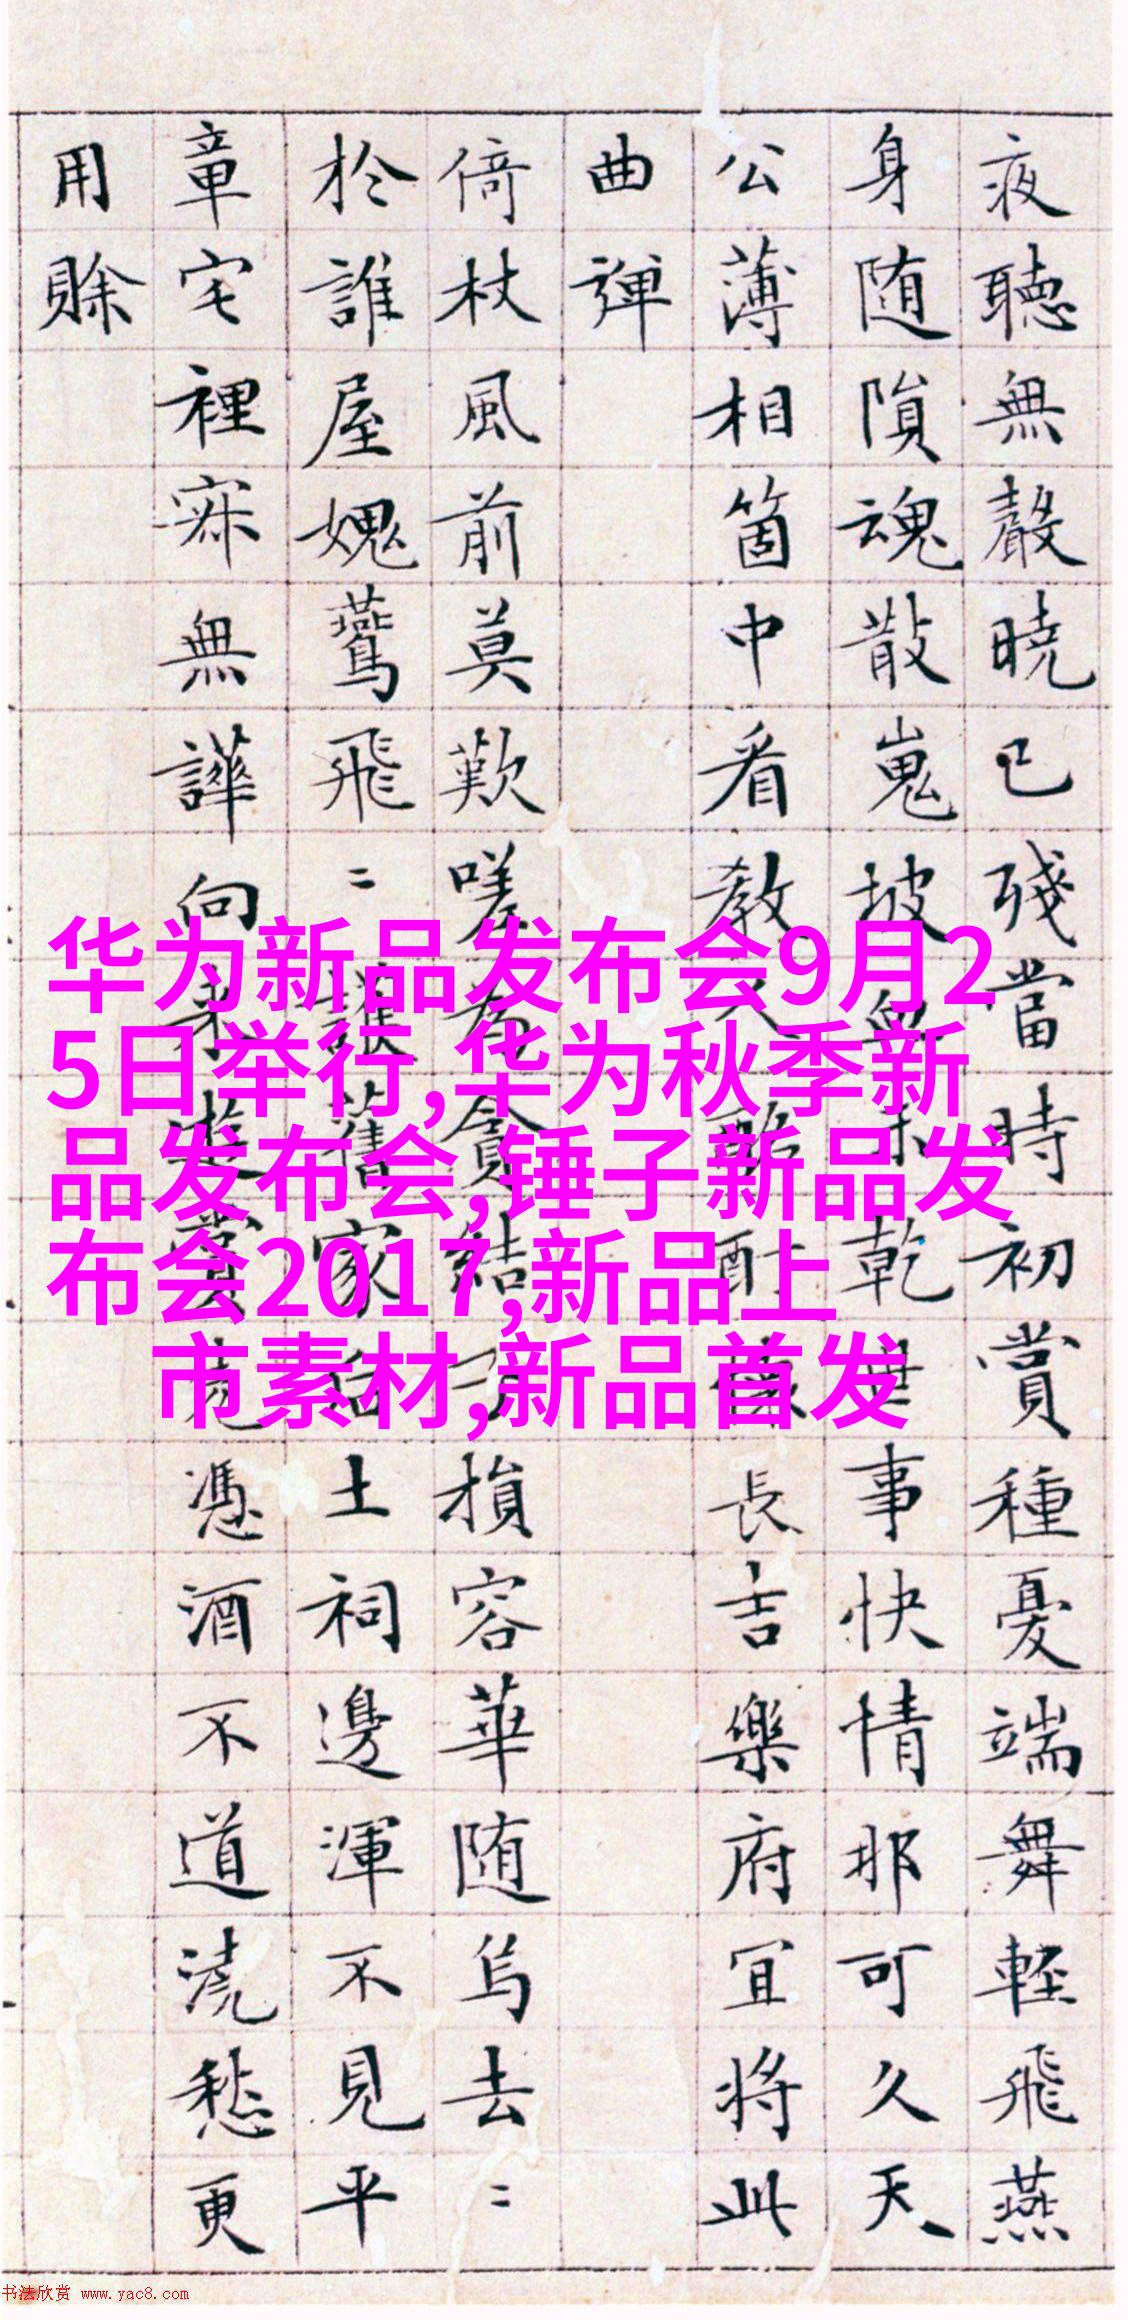 夜聽無聲曉已殘當時初賞種憂端舞輕飛燕
身随隕魂散嵬坡血未乾世事快情那可久天
公薄相箇中看教人酩酊懐長吉樂府宜将此
曲彈
倚杖風前莫歎嗟為貪結子損容華随烏去〻
於誰屋媿鷰飛〻誤舊家后土祠邊渾不見平
章宅裡寂無譁向来遊賞竟憑酒不道澆愁更
用賒
华为新品发布会9月2
5日举行,华为秋季新
品发布会,锤子新品发
布会2017,新品上
市素材,新品首发
书法欣赏 www.yac8.com